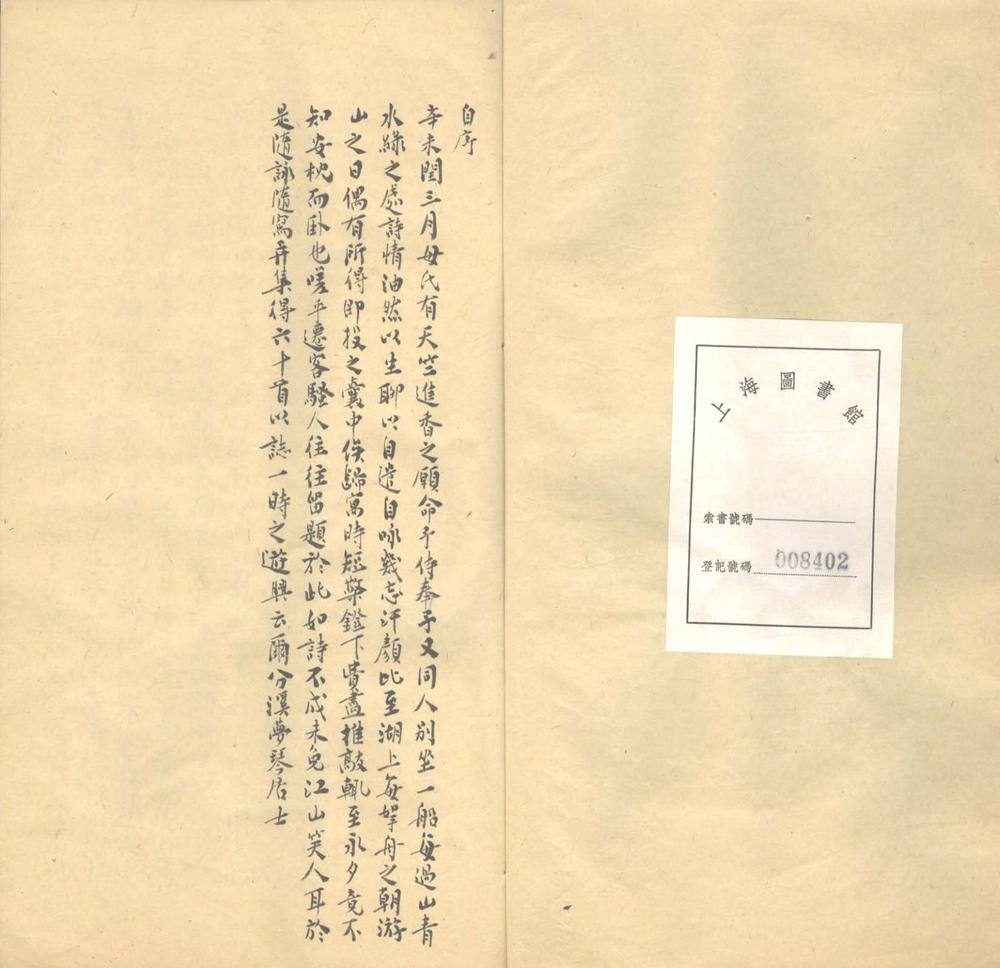 上海圖書館
索書號碼
登記號碼 008402
自序
辛未閏三月母氏有天竺進香之願命予侍奉予又同人別坐一船每過山青
水綠之處詩情油然以生聊以自遣自咏幾忘汗顏比至湖上每拏舟之朝游
山之日偶有所得即投之囊中俟歸寓時短檠鐙下費盡推敲輒至永夕竟不
知安枕而臥也嗟乎遷客騷人往往留題於此如詩不成未免江山笑人耳於
是隨詠隨寫弄集得六十首以誌一時之遊興云爾分溪夢琴居士